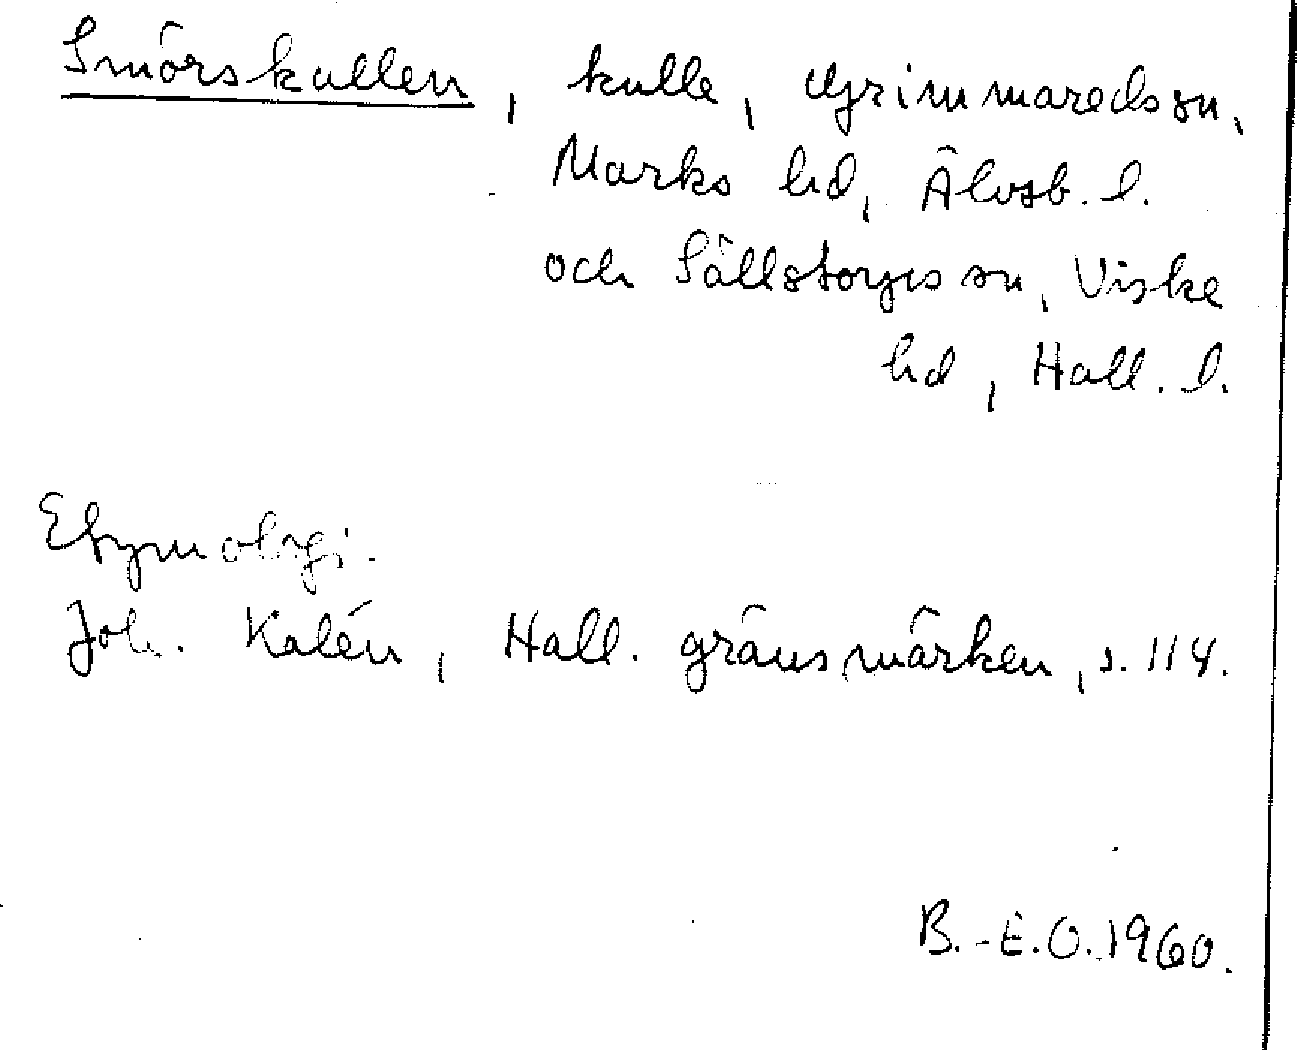 Smörskullen, kulle, Grimmareds sn,
Marks hd, Älvsb. l.
och Sällstorps sn, Viske
hd, Hall. l.
Etymologi.
Joh. Kalén, Hall. gränsmärken, s. 114.
B.-E. O. 1960.